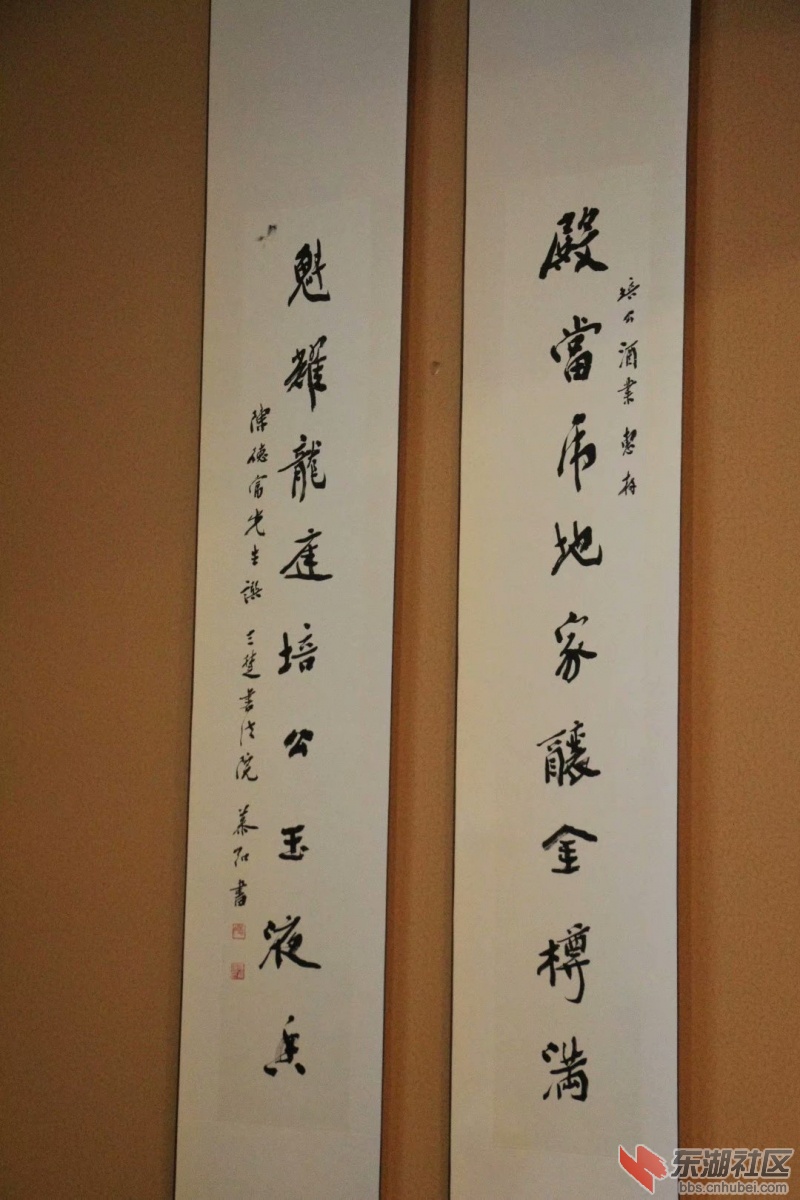 殿當帝地家釀金樽滿
培公酒業惠存
魁耀龍庭培公玉液香
陳德富先生譔 三楚書法院 慕弘書
东湖社区
bbs.cnhubei.com